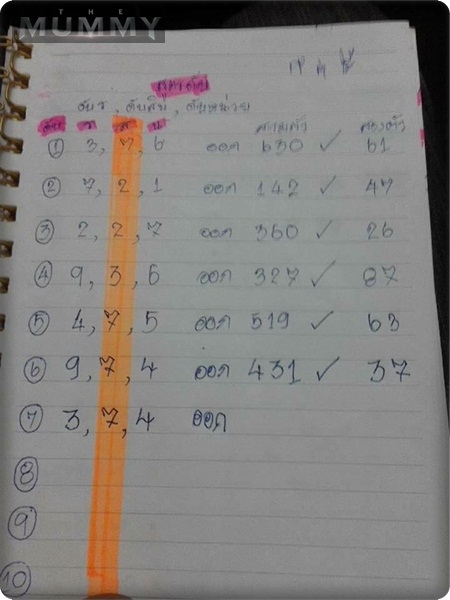 THE
MUMMY
ดับร, ดับสิบ, ดับหน่วย
ดับ ร ส น สามตัว สองตัว
① 3, 7, 6 ออก 630 ✓ 61
② 7, 2, 1 ออก 142 ✓ 47
③ 2, 2, 7 ออก 360 ✓ 26
④ 9, 3, 6 ออก 327 ✓ 87
⑤ 4, 7, 5 ออก 519 ✓ 63
⑥ 9, 7, 4 ออก 431 ✓ 37
⑦ 3, 7, 4 ออก
⑧
⑨
⑩